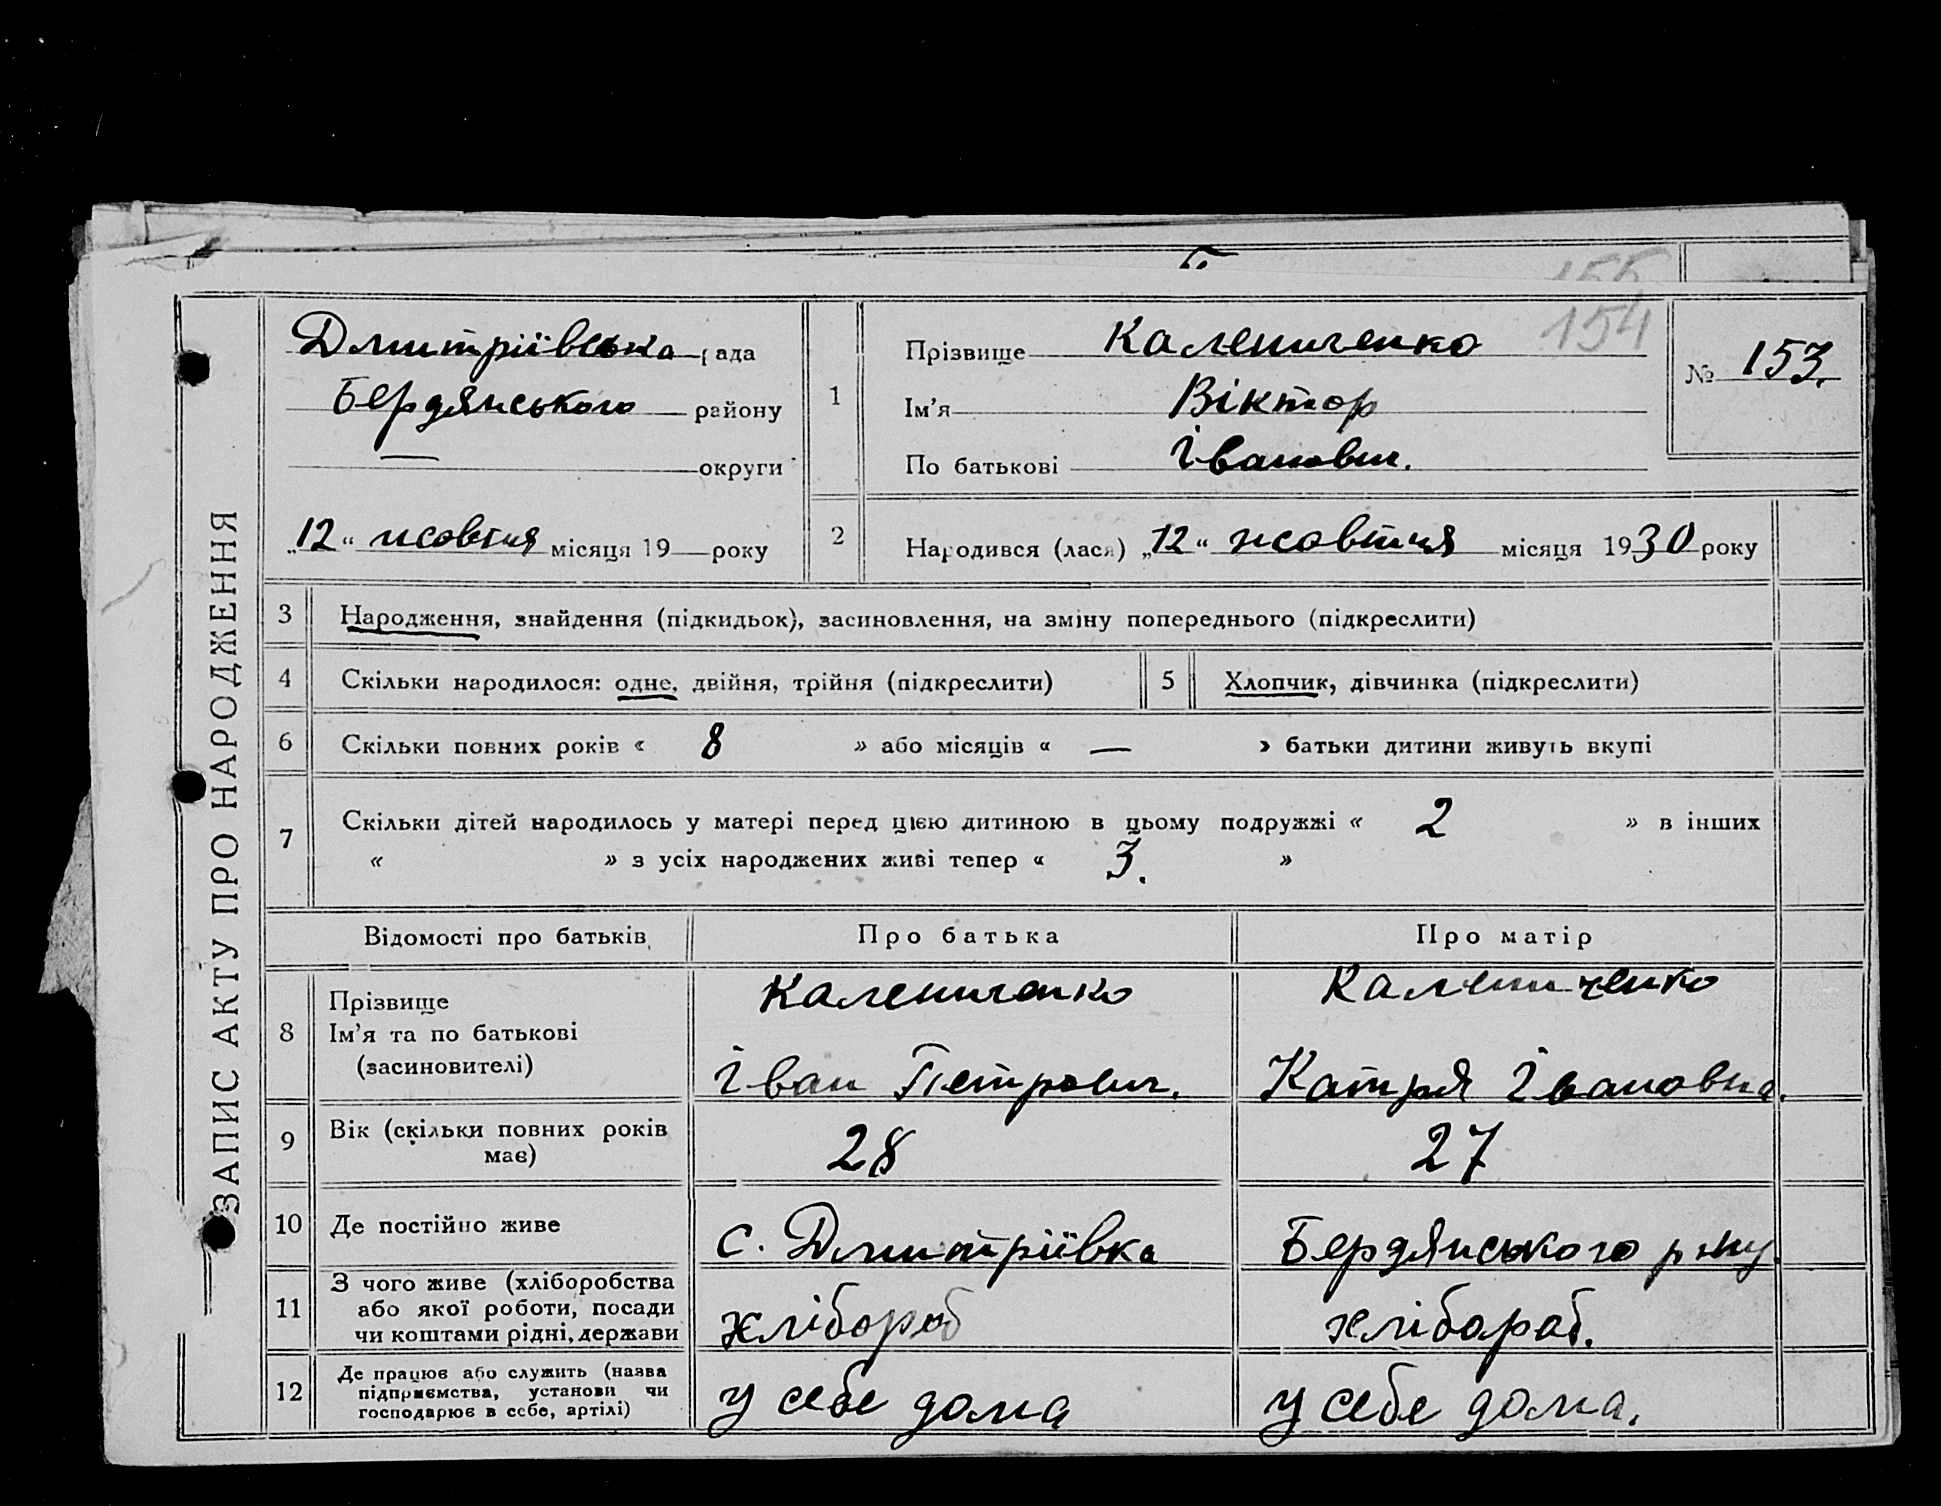 155
154
ЗАПИС АКТУ ПРО НАРОДЖЕННЯ
Дмитріївська рада
Бердянського району
— округи
„12“ жовтня місяця 19 року
1
Прізвище Калениченко
Ім'я Віктор
По батькові Іванович.
№ 153.
2
Народився (лася) „12“ жовтня місяця 1930 року
3 Народження, знайдення (підкидьок), засиновлення, на зміну попереднього (підкреслити)
4 Скільки народилося: одне, двійня, трійня (підкреслити)
5 Хлопчик, дівчинка (підкреслити)
6 Скільки повних років « 8 » або місяців « — » батьки дитини живуть вкупі
7 Скільки дітей народилось у матері перед цією дитиною в цьому подружжі « 2 » в інших
« » з усіх народжених живі тепер « 3. »
Відомості про батьків Про батька Про матір
8 Прізвище Калениченко Калениченко
Ім'я та по батькові
(засиновителі) Іван Петрович. Катря Івановна.
9 Вік (скільки повних років
має) 28 27
10 Де постійно живе с. Дмитріївка Бердянського р-ну.
11 З чого живе (хліборобства
або якої роботи, посади
чи коштами рідні, держави хлібороб хлібороб.
12 Де працює або служить (назва
підприємства, установи чи
господарює в себе, артілі) у себе дома у себе дома.